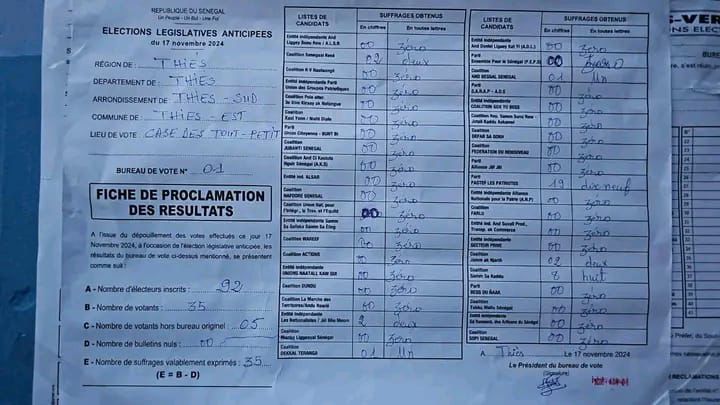 REPUBLIQUE DU SENEGAL
Un Peuple - Un But - Une Foi
ELECTIONS LEGISLATIVES ANTICIPEES
du 17 novembre 2024
RÉGION DE : THIÈS
DEPARTEMENT DE : THIÈS
ARRONDISSEMENT DE THIÈS - SUD
COMMUNE DE THIÈS - EST
LIEU DE VOTE CASE DES TOUT-PETIT
BUREAU DE VOTE N° 01
FICHE DE PROCLAMATION
DES RESULTATS
A l'issue du dépouillement des votes effectués ce jour 17
Novembre 2024, à l'occasion de l'élection législative anticipée, les
résultats du bureau de vote ci-dessus mentionné, se présentent
comme suit :
A - Nombre d'électeurs inscrits : 92
B - Nombre de votants : 35
C - Nombre de votants hors bureau originel : 05
D - Nombre de bulletins nuls : 00
E - Nombre de suffrages valablement exprimés : 35
(E = B - D)
LISTES DE CANDIDATS SUFFRAGES OBTENUS
En chiffres En toutes lettres
Entité indépendante And
Liggey Sunu Reew : A.L.S.R 00 zéro
Coalition Senegaal Kese 02 deux
Coalition R V Naataangé 00 zéro
Entité indépendante Parti
Union des Groupes Patriotiques 00 zéro
Coalition 00 zéro
Coalition
Xaal Yoon 00 zéro
Parti
Union Citoyenne - BUNT BI 00 zéro
Coalition
JUBANTI SENEGAL 00 zéro
Coalition And Ci Koolute
Nguir Sénégal (A.K.S) 00 zéro
Entité ind. ALSAR 00 zéro
Coalition
NAFOORE SENEGAL 00 zéro
Coalition Union Nat. pour
l'Intégr., le Trav. et l'Equité 00 zéro
Entité indépendante Samm
Sa Gafaka Samm Sa Ëllëg 00 zéro
Coalition WAREEF zéro
Coalition ACTIONS 00 zéro
Entité indépendante
UNIONS NAATALL KAW GUI 00 zéro
Coalition DUNDU 00 zéro
Coalition La Marche des
Territoires/Andu Nawlé 00 zéro
Entité indépendante
Les Nationalistes / Jël Liñu Moom 2 deux
Coalition
Ñaatu Ligguéeyal Sénégal 00 zéro
Coalition
DEKKAL TERANGA 01 Un
LISTES DE CANDIDATS SUFFRAGES OBTENUS
En chiffres En toutes lettres
Entité indépendante
And Duolel Liguey Kat Yi (A.D.L) 00 zéro
Parti
Ensemble Pour le Sénégal (P.E.P.S) 00
Coalition
AND BESSAL SENEGAL 01 Un
Parti
S.A.R.R.P - A.D.S 00 zéro
Entité indépendante
COALITION GOX YU BEES 00 zéro
Coalition Rep. Samm Sunu Rew
Jotali Kaddu Askanwi 00 zéro
Coalition
DEFAR SA GOKH 00 zéro
Coalition
FEDERATION DU RENOUVEAU 00 zéro
Parti
Alliance JËF JËL 00 zéro
Parti
PASTEF LES PATRIOTES 19 dix neuf
Entité indépendante Alliance
Nationale pour la Patrie (A.N.P) 00 zéro
Coalition
FARLU 00 zéro
Entité ind. And Suxali Prod.,
Transp. et Commerce 00 zéro
Entité indépendante
SECTEUR PRIVE 00 zéro
Coalition
Jamm ak Njariñ 02 deux
Coalition
Samm Sa Kaddu 8 huit
Parti
BESS DU ÑAKK 00 zéro
Coalition
Takku Wallu Sénégal 00 zéro
Entité indépendante
00 zéro
Coalition
SOPI SENEGAL 00 zéro
A Thiès, Le 17 novembre 2024
Le Président du bureau de vote
(Signature)